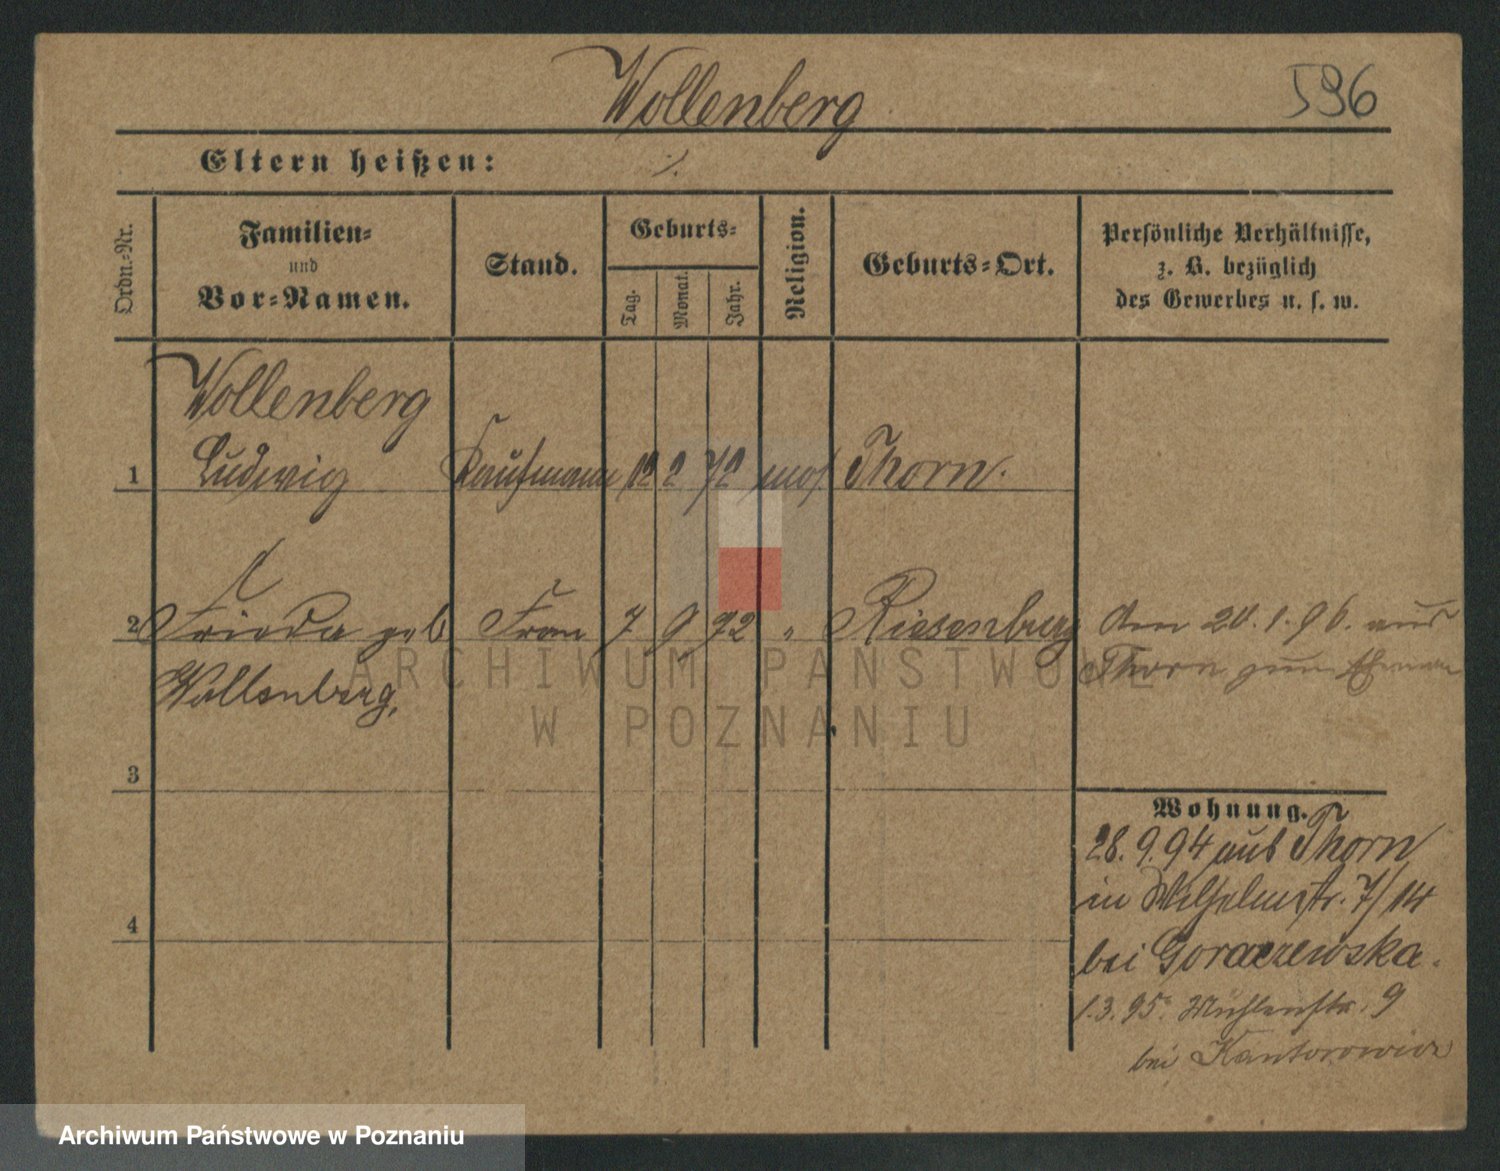 Wollenberg
596
Eltern heißen: ./.
Ordn.-Nr.
Familien-
und
Vor-Namen.
Stand.
Geburts-
Tag.
Monat.
Jahr.
Religion.
Geburts-Ort.
Persönliche Verhältnisse,
z. B. bezüglich
des Gewerbes u. s. w.
Wollenberg
1 Ludwig Kaufmann 12 2 72 mos. Thorn.
2 Frieda geb Frau 7 9 72 " Riesenburg den 20.1.96. aus
Wollenberg, Thorn zum Ehemann
3
4
Wohnung.
28.9.94 aus Thorn
in Wilhelmstr. 7/14
bei Goraczewska.
1.3.95. Mühlenstr. 9
bei Kantorowicz
ARCHIWUM PAŃSTWOWE
W POZNANIU
Archiwum Państwowe w Poznaniu